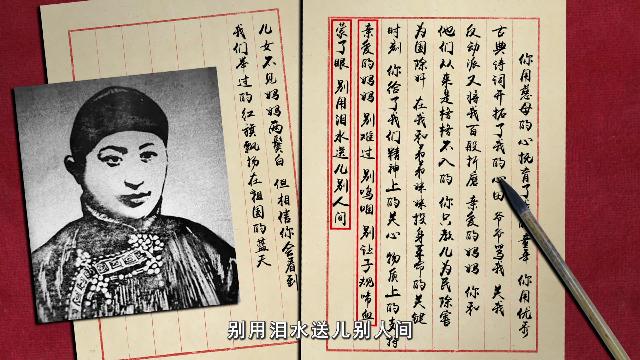 你用慈母的心抚育了的童年 你用优秀
古典诗词开拓了我的心田 爷爷骂我 关我
反动派又将我百般折磨 亲爱的妈妈 你和
他们从来是格格不入的 你只教儿为民除害
为国除奸 在我和弟弟妹妹投身革命的关键
时刻 你给了我们精神上的关心 物质上的支持
亲爱的妈妈 别难过 别呜咽 别让子规啼血
蒙了眼 别用泪水送儿别人间
儿女不见妈妈两鬓白 但相信你会看到
我们举过的红旗飘扬在祖国的蓝天
别用泪水送儿别人间